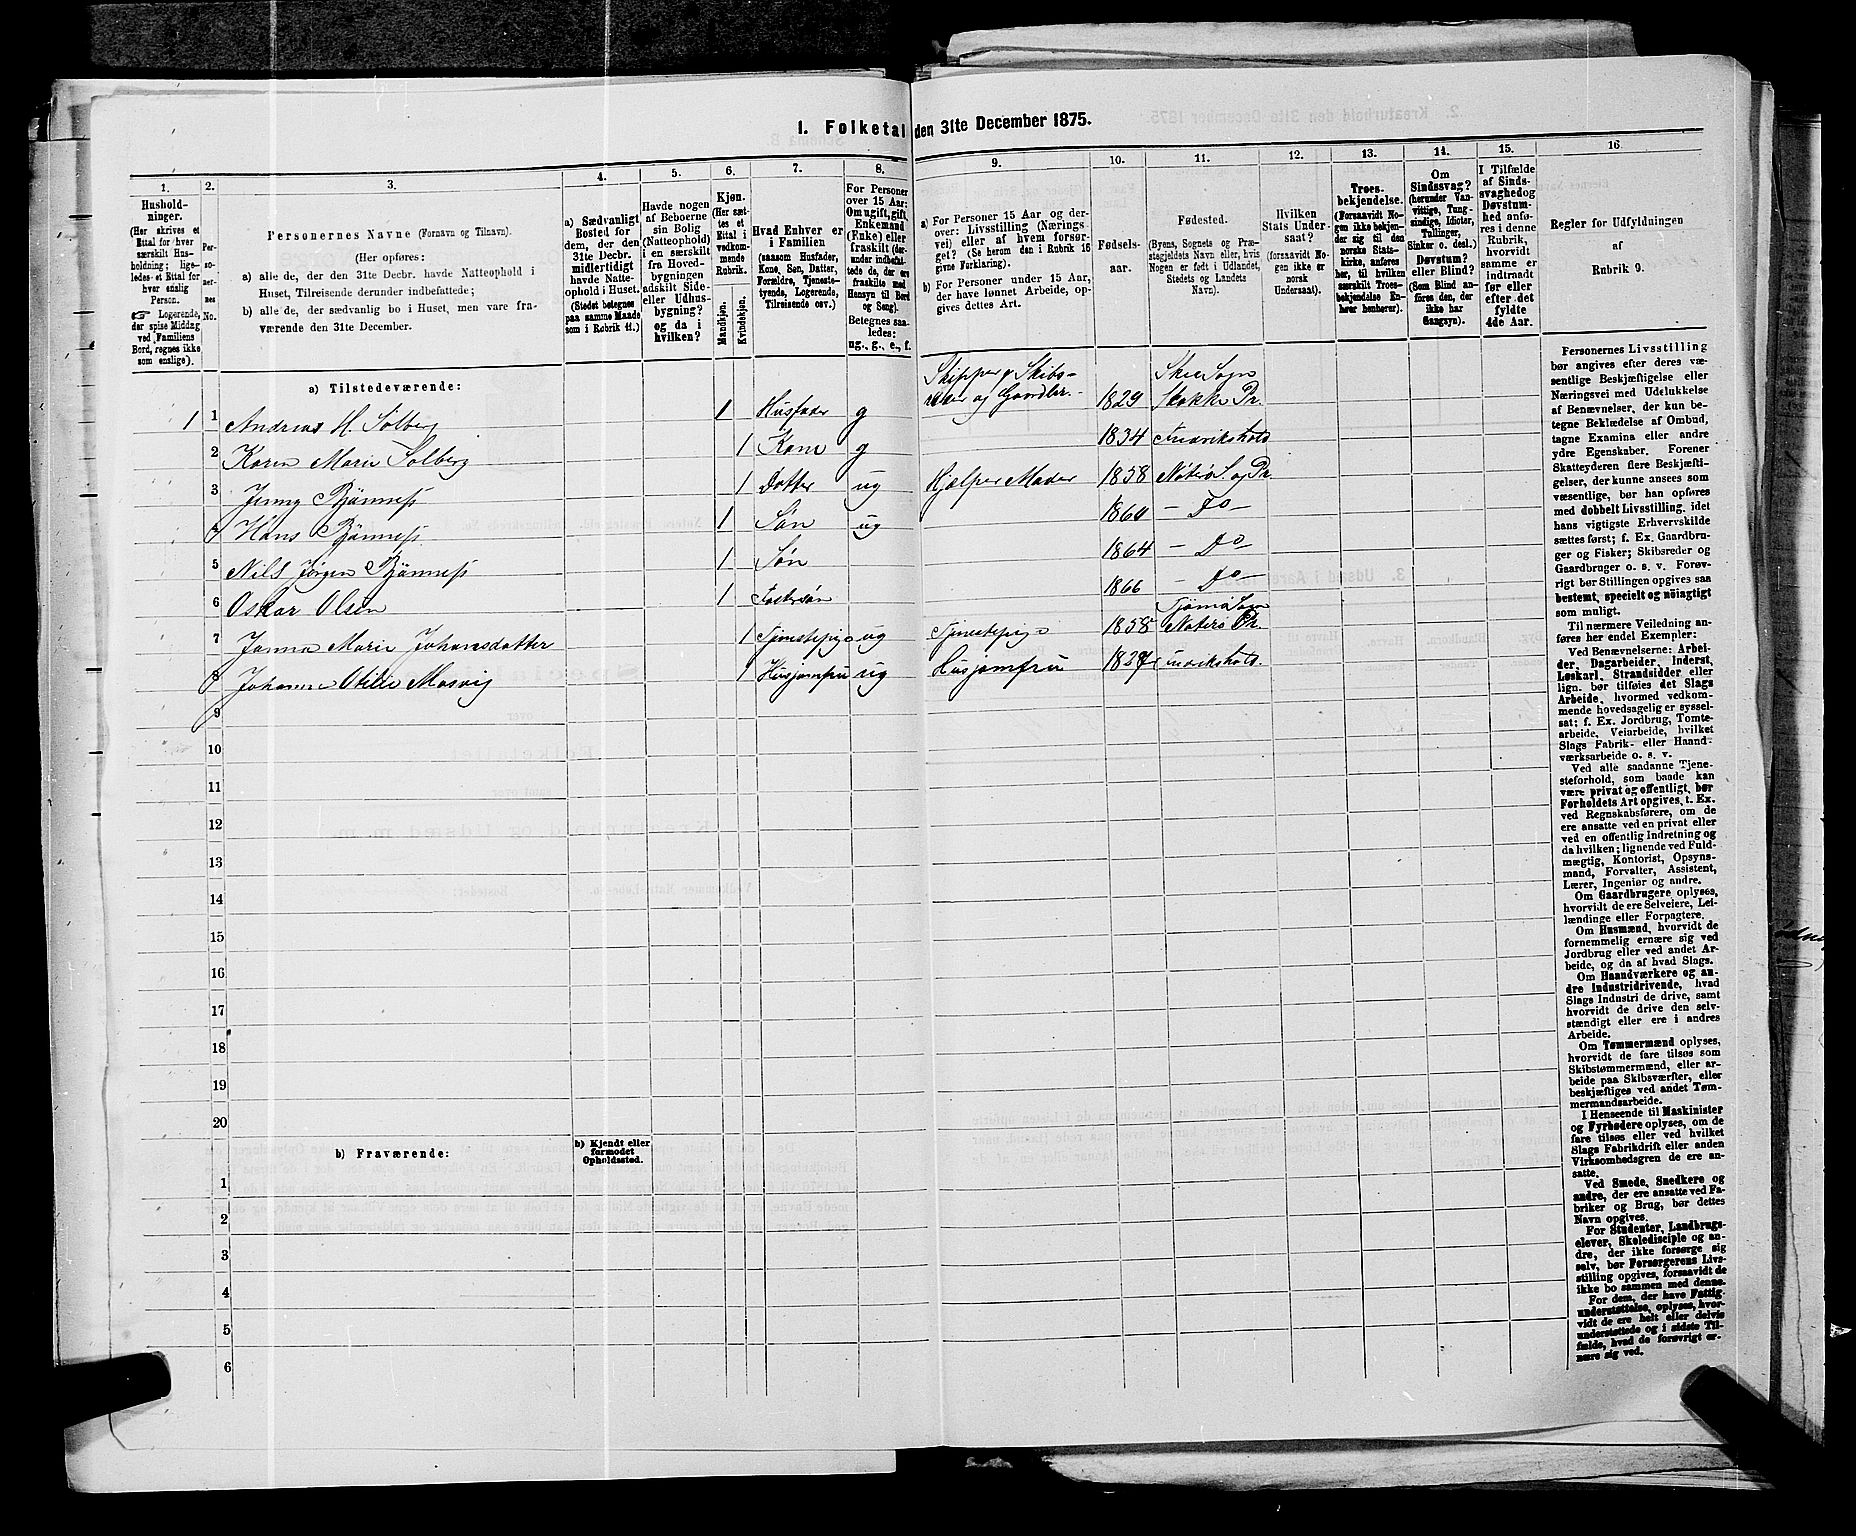 1. Folketal den 31te December 1875.
1. 2. 3. 4. 5. 6. 7. 8. 9. 10. 11. 12. 13. 14. 15. 16.
Hushold-
ninger.
(Her skrives et
Ettal for hver
særskilt Hus-
holdning; lige-
ledes et Ettal for
hver enslig
Person.
☞ Logerende,
der spise Middag
ved Familiens
Bord, regnes ikke
som enslige).
Per-
so-
ner-
nes
No.
Personernes Navne (Fornavn og Tilnavn).
(Her opføres:
a) alle de, der den 31te Decbr. havde Natteophold i
Huset, Tilreisende derunder indbefattede;
b) alle de, der sædvanlig bo i Huset, men vare fra-
værende den 31te December.
a) Sædvanligt
Bosted for
dem, der den
31te Decbr.
midlertidigt
havde Natte-
ophold i Huset.
(Stedet betegnes
paa samme Maade
som i Rubrik 11.)
Havde nogen
af Beboerne
sin Bolig
(Natteophold)
i en særskilt
fra Hoved-
bygningen
adskilt Side-
eller Udhus-
bygning?
og da i
hvilken?
Kjøn.
(Her sæt-
tes et
Ettal i
vedkom-
mende
Rubrik.
Mandkjøn.
Kvindekjøn.
Hvad Enhver er
i Familien
(saasom Husfader,
Kone, Søn, Datter,
Forældre, Tjeneste-
tyende, Logerende,
Tilreisende osv.)
For Personer
over 15 Aar:
Om ugift, gift,
Enkemand
(Enke) eller
fraskilt (der-
under indbefat-
tede de, der ere
fraskilte med
Hensyn til Bord
og Seng).
Betegnes saa-
ledes:
ug., g., e., f.
a) For Personer 15 Aar og der-
over: Livsstilling (Nærings-
vei) eller af hvem forsør-
get? (Se herom den i Rubrik 16
givne Forklaring).
b) For Personer under 15 Aar,
der have lønnet Arbeide, op-
gives dettes Art.
Fødsels-
aar.
Fødested.
(Byens, Sognets og Præ-
stegjeldets Navn eller, hvis
Nogen er født i Udlandet,
Stedets og Landets
Navn).
Hvilken
Stats Under-
saat?
(forsaavidt No-
gen ikke er
norsk
Undersaat).
Troes-
bekjendelse.
(Forsaavidt No-
gen ikke bekjen-
der sig til den
norske Stats-
kirke, anføres
her, til hvilken
særskilt Troes-
bekjendelse En-
hver henhører).
Om
Sindssvag?
(herunder Van-
vittige, Tung-
sindige, Idioter,
Tullinger,
Sinker o. desl.)
Døvstum?
eller Blind?
(Som Blind an-
føres den, der
ikke har
Gangsyn).
I Tilfælde
af Sinds-
svaghed og
Døvstum-
hed anfø-
res i denne
Rubrik,
hvorvidt
samme er
indtraadt
før eller
efter det
fyldte
4de Aar.
Regler for Udfyldningen
af
Rubrik 9.
a) Tilstedeværende:
1 1 Andreas H. Solberg 1 Husfader g Skipper, Skibs- reder og Gaardbr. 1829 Skee Sogn Stokke Pr.
2 Karen Marie Solberg 1 Kone g 1834 Fredrikshald
3 Jenny Bjønness 1 Datter ug Hjælper Moder 1858 Nøterø S. og Pr.
4 Hans Bjønness 1 Søn ug 1860 — Do —
5 Nils Jørgen Bjønness 1 Søn 1864 — Do
6 Oskar Olsen 1 Fostersøn 1866 — Do
7 Janna Marie Johansdatter 1 Tjenestepige ug Tjenestepige 1858 Tjømø Sogn Nøterø Pr.
8 1 Husjomfru ug Husjomfru Fredrikshald.
9
10
11
12
13
14
15
16
17
18
19
20
b) Fraværende:
b) Kjendt eller
formodet
Opholdssted.
1
2
3
4
5
6
Personernes Livsstilling
bør angives efter deres væ-
sentlige Beskjæftigelse eller
Næringsvei med Udelukkelse
af Benævnelser, der kun be-
tegne Beklædelse af Ombud,
tagne Examina eller andre
ydre Egenskaber. Forener
Skatteyderen flere Beskjæfti-
gelser, der kunne ansees som
væsentlige, bør han opføres
med dobbelt Livsstilling, idet
hans vigtigste Erhvervskilde
sættes først; f. Ex. Gaardbru-
ger og Fisker; Skibsreder og
Gaardbruger o. s. v. Forøv-
rigt bør Stillingen opgives saa
bestemt, specielt og nøiagtigt
som muligt.
Til nærmere Veiledning an-
føres her endel Exempler:
Ved Benævnelserne: Arbei-
der, Dagarbeider, Inderst,
Løskarl, Strandsidder eller
lign. bør tilføies det Slags
Arbeide, hvormed vedkom-
mende hovedsagelig er syssel-
sat; f. Ex. Jordbrug, Tomte-
arbeide, Veiarbeide, hvilket
Slags Fabrik- eller Haand-
værksarbeide o. s. v.
Ved alle saadanne Tjene-
steforhold, som baade kan
være privat og offentligt, bør
Forholdets Art opgives, t. Ex.
ved Regnskabsførere, om de
ere ansatte ved en privat eller
ved en offentlig Indretning og
da hvilken; lignende ved Fuld-
mægtig, Kontorist, Opsyns-
mand, Forvalter, Assistent,
Lærer, Ingeniør og andre.
Om Gaardbrugere oplyses,
hvorvidt de ere Selveiere, Lei-
lændinge eller Forpagtere.
Om Husmænd, hvorvidt de
fornemmelig ernære sig ved
Jordbrug eller ved andet Ar-
beide, og da af hvad Slags.
Om Haandværkere og an-
dre Industridrivende, hvad
Slags Industri de drive, samt
hvorvidt de drive den selv-
stændigt eller ere i andres
Arbeide.
Om Tømmermænd oplyses,
hvorvidt de fare tilsøs som
Skibstømmermænd, eller ar-
beide paa Skibsværfter, eller
beskjæftiges ved andet Tøm-
mermandsarbeide.
I Henseende til Maskinister
og Fyrbødere oplyses, om de
fare tilsøs eller ved hvilket
Slags Fabrikdrift eller anden
Virksomhedsgren de ere an-
satte.
Ved Smede, Snedkere og
andre, der ere ansatte ved Fa-
briker og Brug, bør dettes
Navn opgives.
For Studenter, Landbrugs-
elever, Skoledisciple og an-
dre, der ikke forsørge sig
selv, bør Forsørgerens Livs-
stilling opgives, forsaavidt de
ikke bo sammen med denne.
For dem, der have Fattig-
understøttelse, oplyses, hvor-
vidt de ere helt eller delvis
understøttede og i sidste Til-
fælde, hvad de forøvrigt er-
nære sig ved.